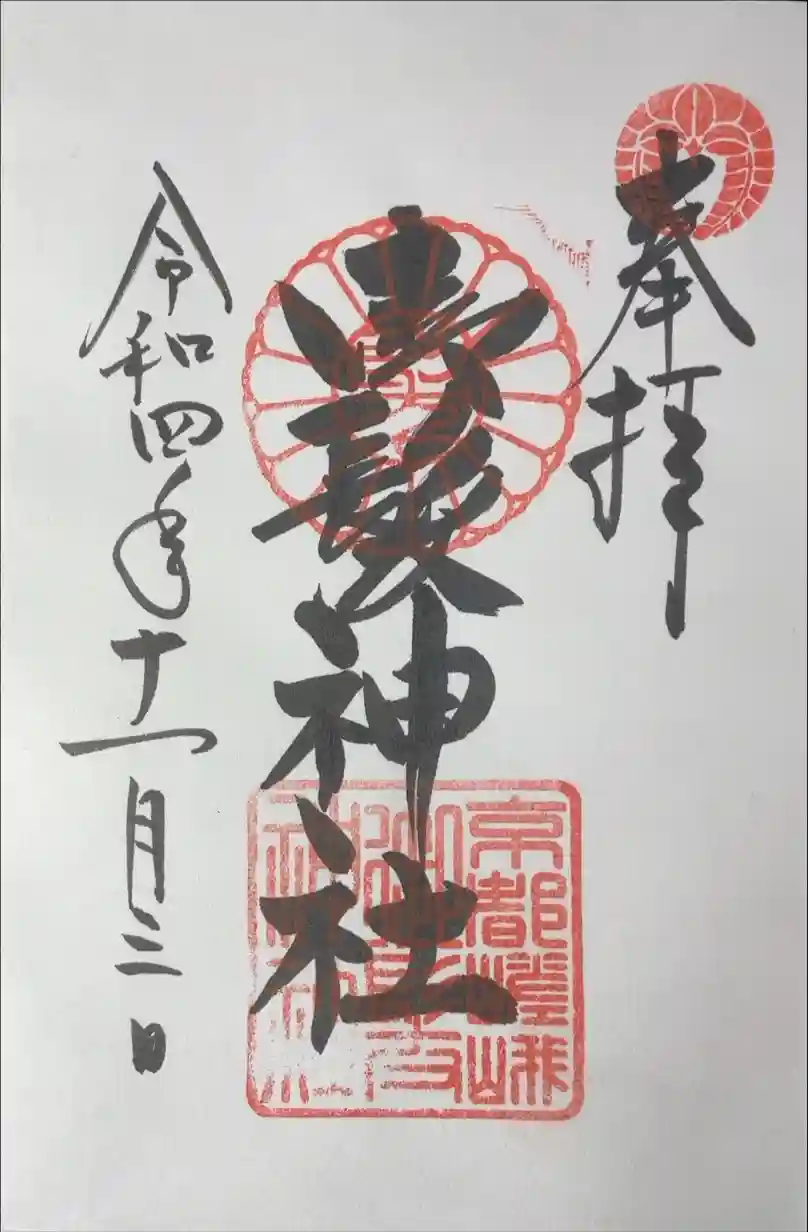 奉拝
御髪神社
令和四年十一月三日
京都嵯峨
御髪
神社